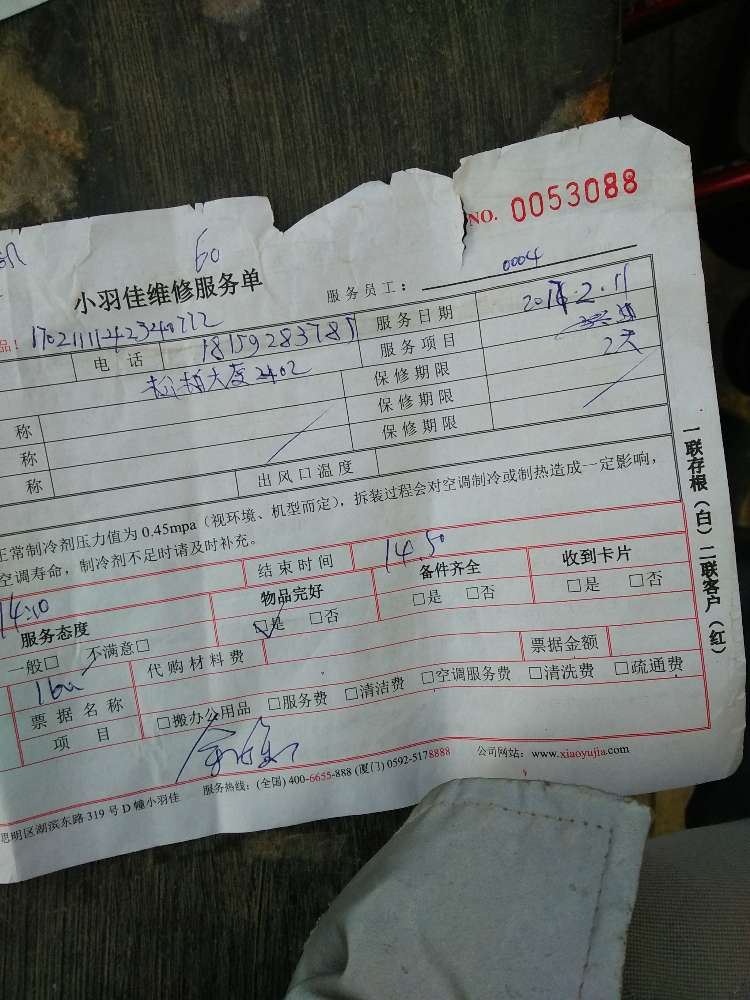 NO. 0053088
60
小羽佳维修服务单
服务员工： 0004
品！ 1702111142340712
服务日期 2017.2.11
电 话 18159283785
服务项目
松柏大厦2402
保修期限 2天
称
保修期限
称
保修期限
称
出风口温度
正常制冷剂压力值为 0.45mpa（视环境、机型而定），拆装过程会对空调制冷或制热造成一定影响，
空调寿命，制冷剂不足时请及时补充。
14:10
结束时间 14.50
服务态度 物品完好 备件齐全 收到卡片
一般□ 不满意□ □是 □否 □是 □否 □是 □否
160 代购材料费 票据金额
票据名称 □搬办公用品 □服务费 □清洁费 □空调服务费 □清洗费 □疏通费
项 目
思明区湖滨东路 319 号 D 幢小羽佳 服务热线：(全国) 400-6655-888 (厦门) 0592-5178888 公司网站：www.xiaoyujia.com
一联存根（白）二联客户（红）